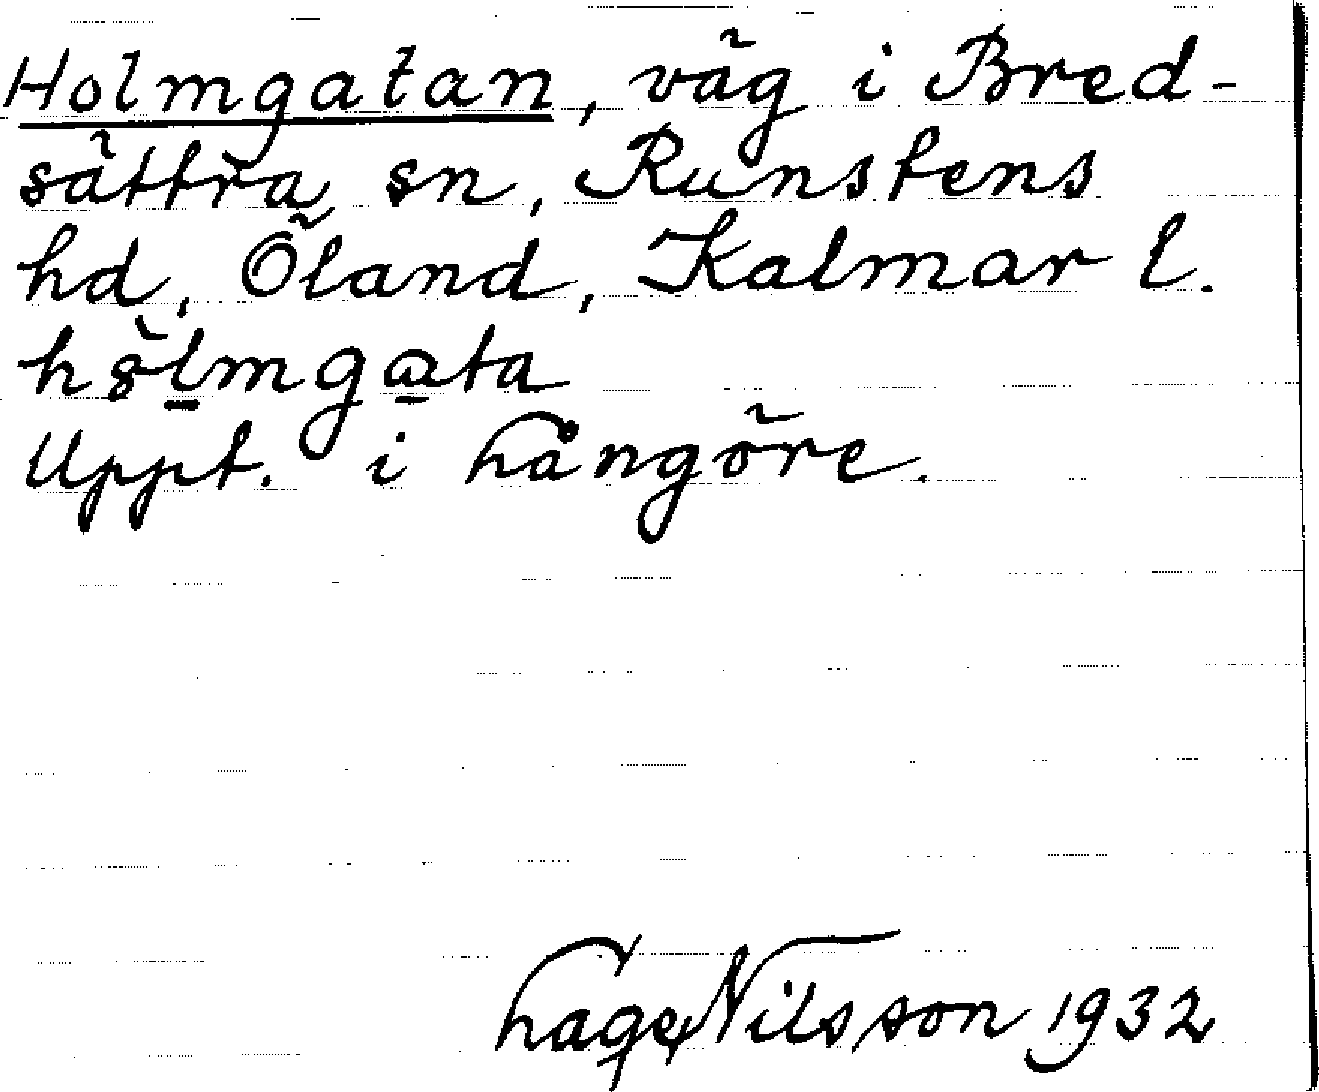 Holmgatan, väg i Bred-
sättra sn, Runstens
hd, Öland, Kalmar l.
Uppt. i Långöre.
Nilsson 1932